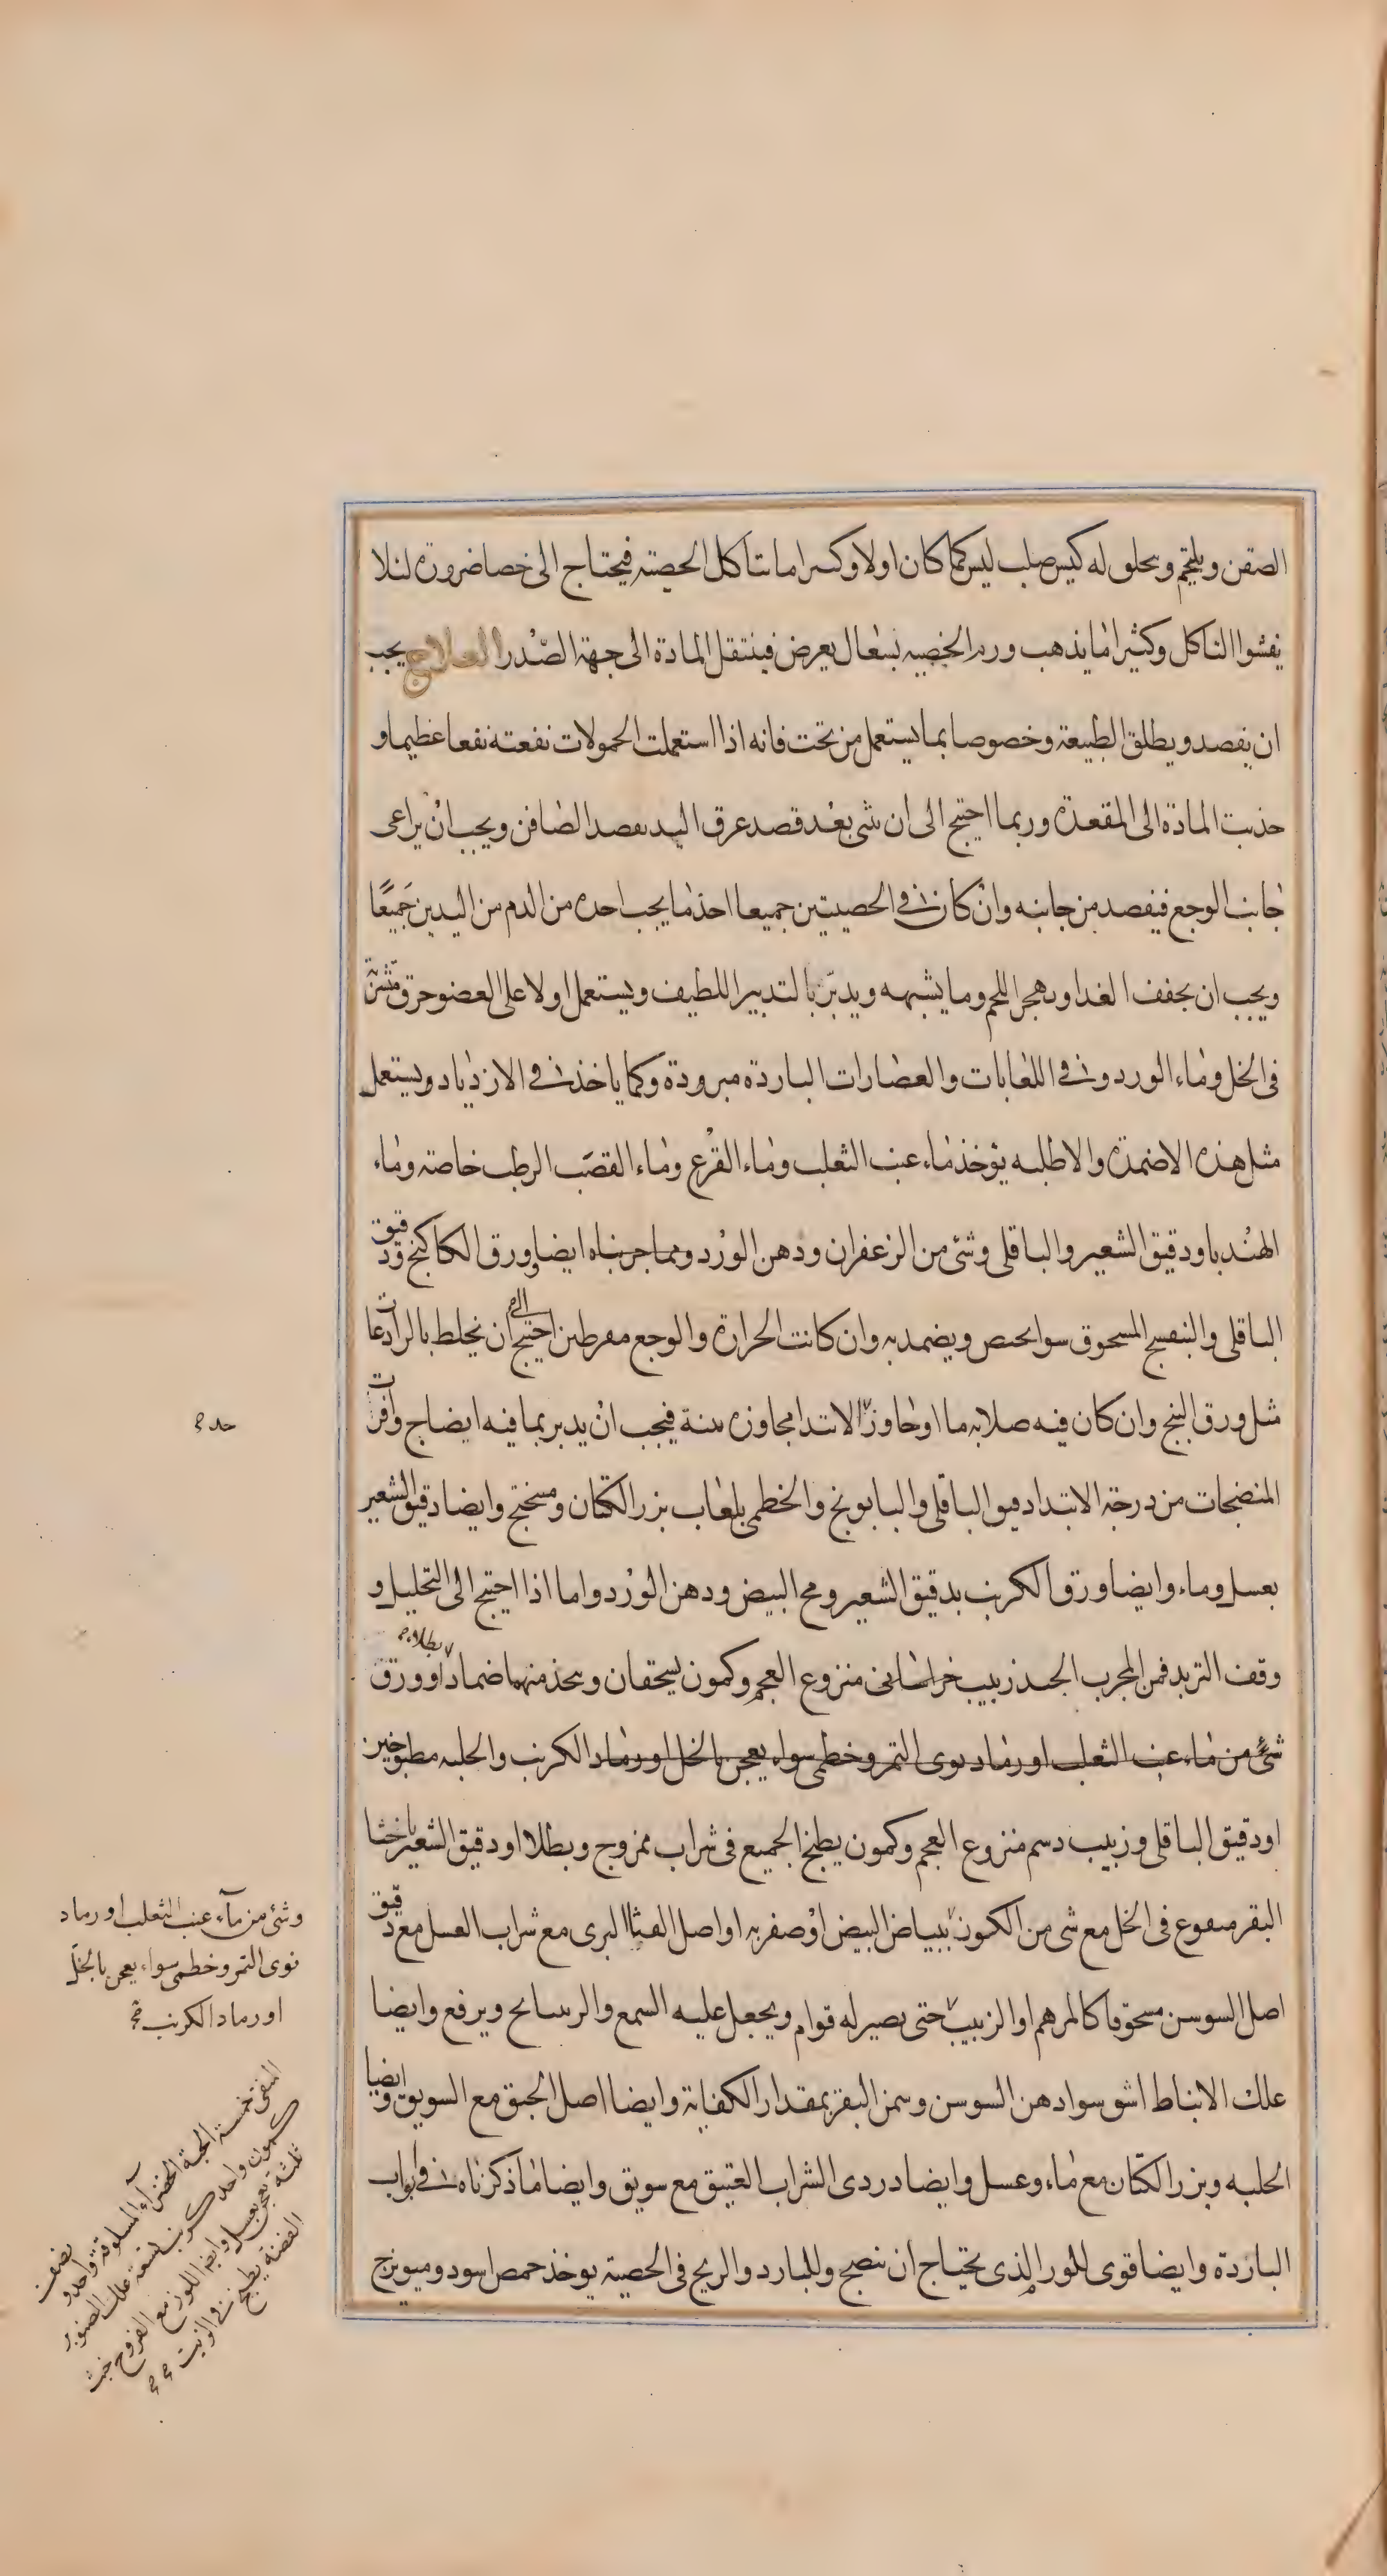 الصفن ويلتحم ويخلق له كيس صلب ليس كما كان اولا وكثيرا ما تتاكل الخصية فيحتاج الى خصا ضرورة لئلا
يفشوا التاكل وكثيرا ما يذهب ورم الخصيه بسعال يعرض فينتقل المادة الى جهة الصدر العلاج يجب
ان يفصد ويطلق الطبيعة وخصوصا بما يستعمل من تحت فانه اذا استعملت الحمولات نفعته نفعا عظيما و
جذبت المادة الى المقعدة وربما احتيج الى ان ثنى بعد فصد عرق اليد بفصد الصافن ويجب ان يراعى
جانب الوجع فيفصد من جانبه وان كان فى الخصيتين جميعا اخذ ما يجب اخذه من الدم من اليدين جميعا
ويجب ان يخفف الغذا ويهجر اللحم وما يشبهه ويدبر بالتدبير اللطيف ويستعمل اولا على العضو خرق مشربة
فى الخل وماء الورد وفى اللعابات والعصارات الباردة مبرودة وكما ياخذ فى الازدياد ويستعمل
مثل هذه الاضمدة والاطليه يؤخذ ماء عنب الثعلب وماء القرع وماء القصب الرطب خاصة وماء
الهندبا ودقيق الشعير والباقلى وشئ من الزعفران ودهن الورد ومما جربناه ايضا ورق الكاكنج ودقيق
الباقلى والبنفسج المسحوق سوا يحص ويضمد به وان كانت الحرارة والوجع مفرطين احتيج الى ان يخلط بالرادعات
مثل ورق البنج وان كان فيه صلابه ما او جاوز الابتدا مجاوزة بينة فيجب ان يدبر بما فيه ايضاج وافرات
المنضجات من درجة الابتدا دقيق الباقلى والبابونج والخطمى بلعاب بزر الكتان ومنختج وايضا دقيق الشعير
بعسل وماء وايضا ورق الكرنب بدقيق الشعير ومح البيض ودهن الورد واما اذا احتيج الى التحليل و
وقف التزيد فمن المجرب الجيد زبيب خراسانى منزوع العجم وكمون يسحقان ويتخذ منهما ضمادا او ورق
بطلاء
شئ من ماء عنب الثعلب او رماد نوى التمر وخطمى سواء يعجن بالخل او رماد الكرنب والحلبه مطبوخين
او دقيق الباقلى وزبيب دسم منزوع العجم وكمون يطبخ الجميع فى شراب ممزوج ويطلا او دقيق الشعير باخثا
البقر منقوع فى الخل مع شى من الكمون ببياض البيض او صفرته او اصل القثاا البرى مع شراب العسل مع دقيق
اصل السوسن مسحوقا كالمرهم او الزبيب حتى يصير له قوام ويجعل عليه السمع والرسايح ويرفع وايضا
علك الانباط اشق سوا دهن السوسن وسمن البقر بمقدار الكفاية وايضا اصل الحبق مع السويق وايضا
الحلبه وبزر الكتان مع ماء وعسل وايضا دردى الشراب العتيق مع سويق وايضا ما ذكرناه فى ابواب
الباردة وايضا قوى للورم الذى يحتاج ان ينضج وللبارد والريح فى الخصية يوخذ حمص اسود وميويزج
وشئ من ماء عنب الثعلب او رماد
نوى التمر وخطمى سواء يعجن بالخل
او رماد الكرنب
الحبة الخضراء المسلوقة واحد و نصف
كمون واحد كرنب تسعة علك الصنوبر
ثلثة يعجن بعسل وايضا اللوز مع الفروح
الفضة يطبخ فى الزيت